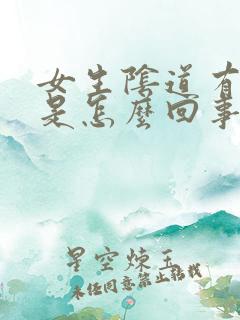 女生陰道有
是怎麼回事
星空煉玉
未经同意禁止转载